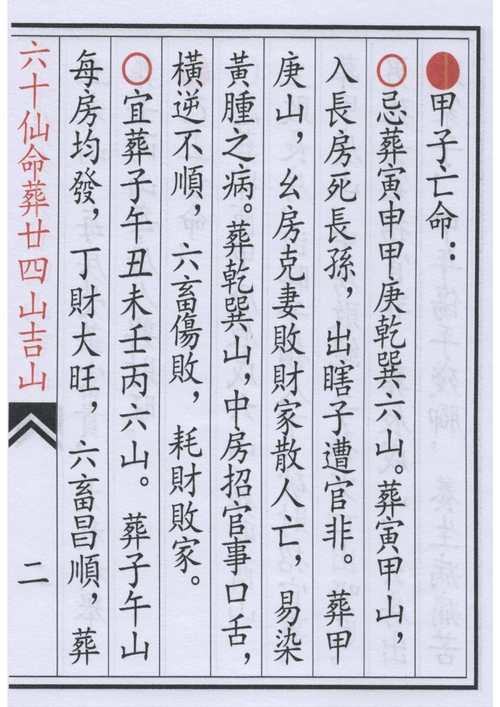 甲子亡命：
忌葬寅申甲庚乾巽六山。葬寅甲山，
入長房死長孫，出瞎子遭官非。葬甲
庚山，幺房克妻敗財家散人亡，易染
黃腫之病。葬乾巽山，中房招官事口舌，
橫逆不順，六畜傷敗，耗財敗家。
宜葬子午丑未壬丙六山。葬子午山
每房均發，丁財大旺，六畜昌順，葬
六十仙命葬廿四山吉山
二